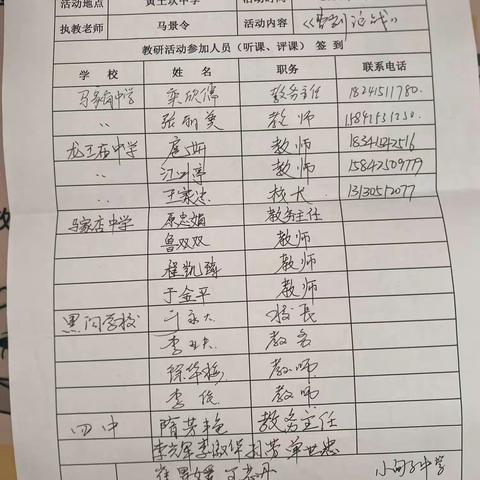 活动地点 黄土坎中学 活动时间
执教老师 马景令 活动内容 《曹刿论战》
教研活动参加人员（听课、评课）签到
学校 姓名 职务 联系电话
马家店中学 栾欣儒 教务主任 18241511780
〃 张丽美 教师
龙王庙中学 教师 18341542516
〃 教师 15842509779
〃 王家忠 校长 13130512077
马家店中学 原志娟 教务主任
鲁双双 教师
程凯臻 教师
于金平 教师
黑沟学校 于永大 校长
教务
徐华梅 教师
李俊 教师
四中 隋芳艳 教务主任
李克军 李淑保 刘芳 单世忠
小甸子中学